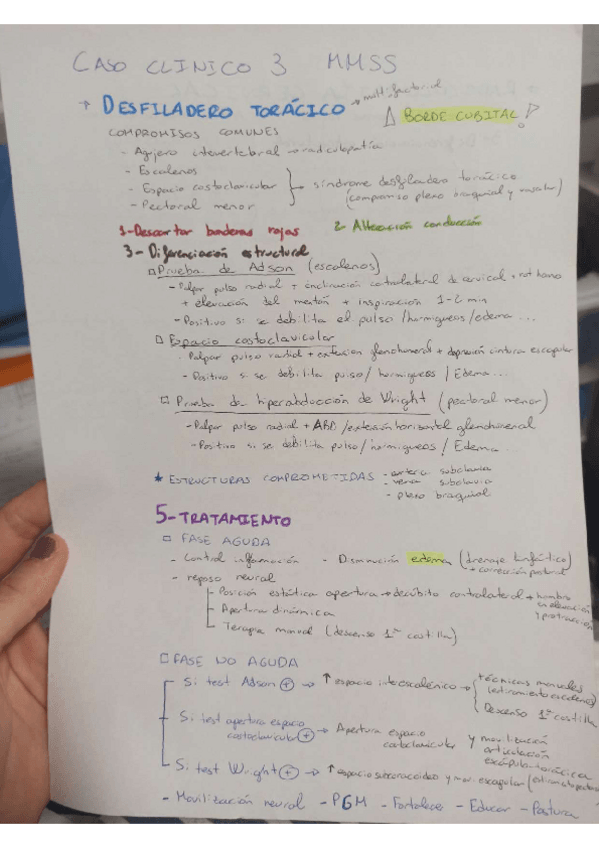 CASO CLINICO 3 MMSS
→ DESFILADERO TORÁCICO → multifactorial
⚠ BORDE CUBITAL!
COMPROMISOS COMUNES
- Agujero intervertebral → radiculopatía
- Escalenos
- Espacio costoclavicular } → síndrome desfiladero torácico
- Pectoral menor (compromiso plexo braquial y vascular)
1-Descartar banderas rojas 2- Alteración conducción
3- Diferenciación estructural
□ Prueba de Adson (escalenos)
- Palpar pulso radial + inclinación contralateral de cervical + rot homo
+ elevación del mentón + inspiración 1-2 min
- Positivo si se debilita el pulso /hormigueos/edema ...
□ Espacio costoclavicular
- Palpar pulso radial + extension glenohumeral + depresión cintura escapular
- Positivo si se debilita pulso/ hormigueos / Edema...
□ Prueba de hiperabducción de Wright (pectoral menor)
- Palpar pulso radial + ABD /extensión horizontal glenohumeral
- Positivo si se debilita pulso/hormigueos / Edema...
★ ESTRUCTURAS COMPROMETIDAS - arteria subclavia
- vena subclavia
- plexo braquial
5-TRATAMIENTO
□ FASE AGUDA
- Control inflamación - Disminución edema (drenaje linfático)
+ corrección postural
- reposo neural
- Posición estática apertura → decúbito contralateral + hombro
en elevación
y protracción
- Apertura dinámica
- Terapia manual (descenso 1ª costilla)
□ FASE NO AGUDA
- Si test Adson ⊕ → ↑ espacio interescalénico → técnicas manuales
(estiramiento escalenos)
Descenso 1ª costilla
- Si test apertura espacio
costoclavicular ⊕ → Apertura espacio
costoclavicular y movilización
articulación
escápulo-torácica
- Si test Wright ⊕ → ↑ espacio subcoracoideo y mov. escapular
- Movilización neural - PGM - Fortalecer - Educar - Postura